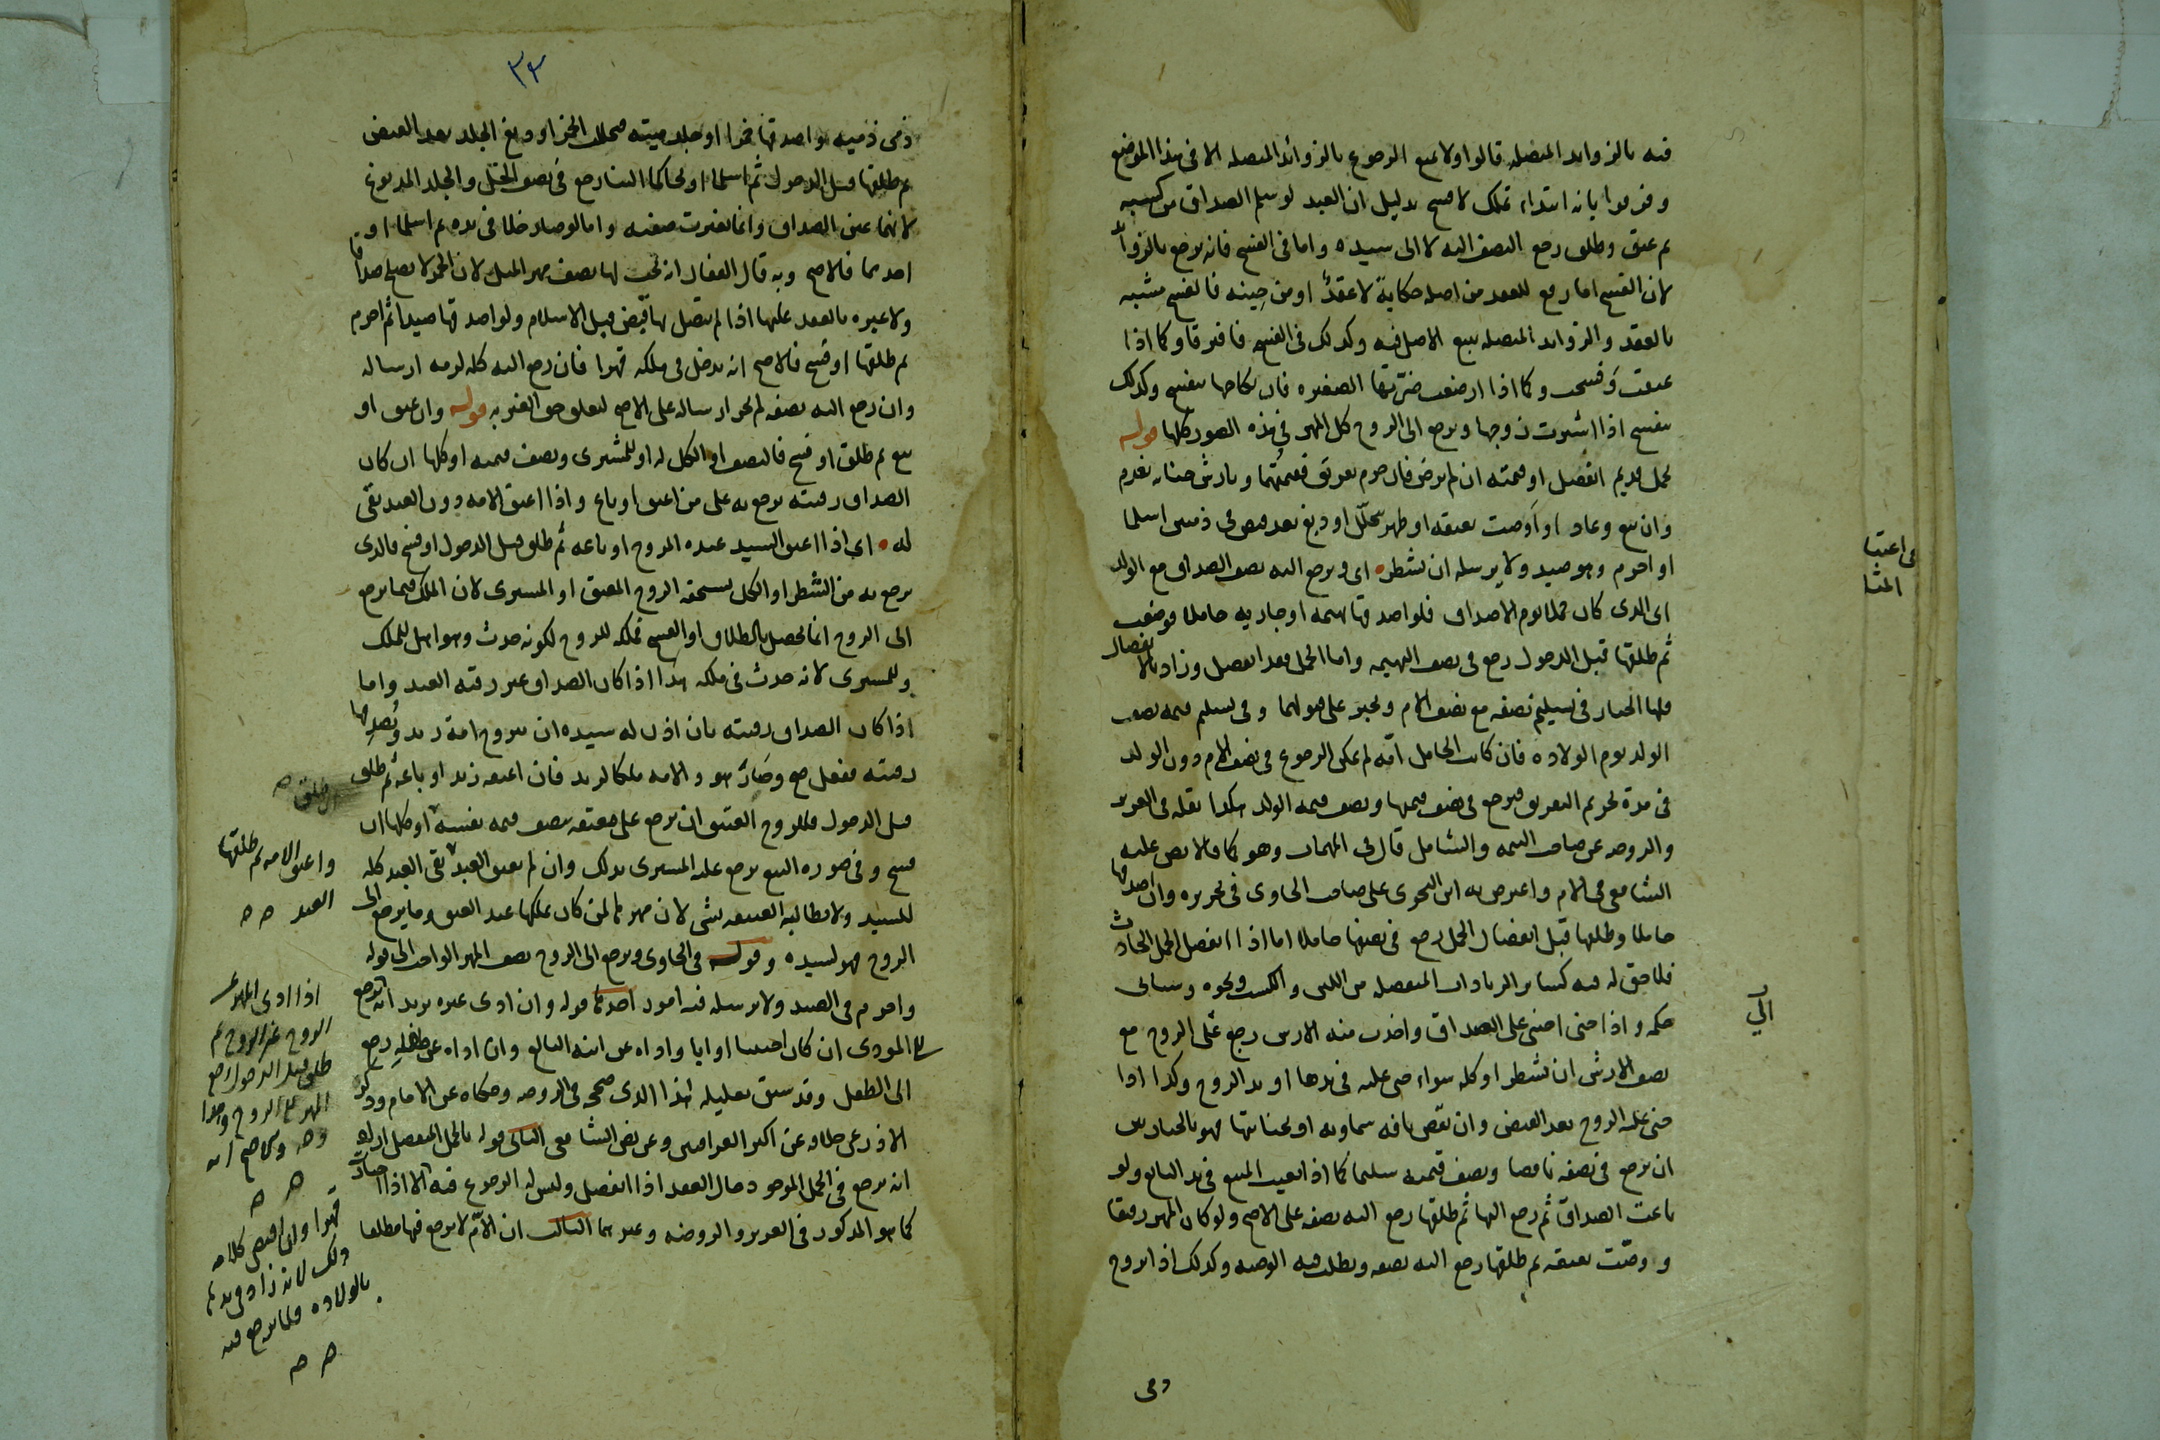 فيه بالزوايد المتصله قالوا ولا يمنع الرجوع بالزوائد المتصله الا في هذا الموضع
وفرقوا بانه ابتداء تملك لا فسخ بدليل ان العبد لو سلم الصداق من كسبه
ثم عتق وطلق رجع النصف اليه لا الى سيده واما في الفسخ فانه يرجع بالزوائد
لان الفسخ اما رفع للعقد من اصله حكاية لا عقد او من حينه فالفسخ مشبه
بالعقد والزوايد المتصله تتبع الاصل فيه وكذلك في الفسخ فافترقا وكما اذا
عتقت وفسخت وكما اذا ارضعت ضرتها الصغيره فان نكاحها ينفسخ وكذلك
ينفسخ اذا اشترت زوجها ويرجع الى الزوج كل المهر في هذه الصور كلها قوله
بحمل قديم انفصل او قيمته ان لم يرض فان حرم تفريق فقيمتهما وبارش جنايه بغرم
وان بيع وعاد او اوصت بعتقه او طهر بتخلل او دبغ بعد قبض في ذميين اسلما
او احرم وهو صيد ولا يرسله ان تشطر اي ويرجع اليه نصف الصداق مع الولد
اي الذي كان حملا يوم الاصداق فلو اصدقها بهيمه او جاريه حاملا فوضعت
ثم طلقها قبل الدخول رجع في نصف البهيمه واما الحمل فقد انفصل وزاد بالانفصال
فلها الخيار في تسليم نصفه مع نصف الام ويجبر على قبولهما وفي تسليم قيمه نصف
الولد يوم الولاده فان كانت الحامل امة لم يمكن الرجوع في نصف الام دون الولد
في مدة تحريم التفريق فيرجع في نصف قيمتها ونصف قيمه الولد هكذا نقله في العزيز
والروضه عن صاحب التتمه والشامل قال في المهمات وهو كما قالا نص عليه
الشافعي في الام واعترض به ابن النحوي على صاحب الحاوي في تحريره وان اصدقها
حاملا وطلقها قبل انفصال الحمل رجع في نصفها حاملا اما اذا انفصل الحمل الحادث
فلا حق له فيه كسائر الزيادات المنفصله من اللبن والكسب ونحوه وسياتي
حكمه واذا جنى اجنبي على الصداق واخذت منه الارش رجع على الزوج مع
نصف الارش ان تشطر او كله سواء جنى عليه في يدها او يد الزوج وكذا اذا
جنى عليه الزوج بعد القبض وان نقص بافه سماويه او بجنايتها فهو بالخيار بين
ان يرجع في نصفه ناقصا ونصف قيمته سليما كما اذا تعيب المبيع في يد البايع ولو
باعت الصداق ثم رجع اليها ثم طلقها رجع اليه نصفه على الاصح ولو كان المهر رقيقا
ووصّت بعتقه ثم طلقها رجع اليه نصفه وبطلت فيه الوصيه وكذلك اذا تزوج
ذمي
في اعتبا
المثا
الى
٣٣
ذمي ذميه واصدقها خمرا او جلد ميته فتخلل الخمر او دبغ الجلد بعد القبض
ثم طلقها قبل الدخول ثم اسلما او تحاكما الينا رجع في نصف الخل والجلد المدبوغ
لانهما عين الصداق وانما تغيرت صفته واما لو صار خلا في يده ثم اسلما او
احدهما فالاصح وبه قال القفال انه يجب لها نصف مهر المثل لان الخمر لا يصلح صداقا
ولا عبره بالعقد عليها اذا لم يتصل بها قبض قبل الاسلام ولو اصدقها صيدا ثم احرم
ثم طلقها او فسخ فالاصح انه يدخل في ملكه قهرا فان رجع اليه كله لزمه ارساله
وان رجع اليه نصفه لم يجز ارساله على الاصح لتعلق حق الغير به قوله وان عتق او
بيع ثم طلق او فسخ فالنصف او الكل له او للمشتري ونصف قيمته او كلها ان كان
الصداق رقبته يرجع به على من اعتق او باع واذا اعتق الامه دون العبد بقي
له اي اذا اعتق السيد عبده المزوج او باعه ثم طلق قبل الدخول او فسخ فالذي
يرجع به من الشطر او الكل يستحقه الزوج المعتق او المشتري لان الملك فيما يرجع
الى الزوج انما يحصل بالطلاق او الفسخ فملكه للزوج لكونه حدث وهو اهل للملك
وللمشتري لانه حدث في ملكه هذا اذا كان الصداق غير رقبة العبد واما
اذا كان الصداق رقبته بان اذن له سيده ان يتزوج امة زيد ويصدقها
رقبته ففعل صح وصار هو والامه ملكا لزيد فان اعتقه زيد او باعه ثم طلق
قبل الدخول فللزوج العتيق ان يرجع على معتقه بنصف قيمه نفسه او كلها ان
فسخ وفي صوره البيع يرجع عليه المشتري بذلك وان لم يعتق العبد بقي العبد كله
للسيد ولا يطالبه العتيقه بشي لان مهرها لمن كان يملكها عند العتق وما يرجع الى
الزوج فهو لسيده وقوله في الحاوي ويرجع الى الزوج نصف المهر الواجب الى قوله
واحرم في الصيد ولا يرسله فيه امور احدها قوله وان ادى غيره يريد انه يرجع
الى المودي ان كان اجنبيا او ابا واداه عن ابنه البالغ وان اداه عن طفله رجع
الى الطفل وقد سبق تعليله هذا الذي صححه في الروضه وحكاه عن الامام وذكر
الاذرعي خلافه عن اكثر العراقيين وعن نص الشافعي الثاني قوله بالحمل المنفصل اراد
انه يرجع في الحمل الموجود حال العقد اذا انفصل وليس له الرجوع فيه الا اذا اختارت
كما هو المذكور في العزيز والروضه وغيرهما الثالث ان الام لا يرجع فيها مطلقا
واعتق الامه ثم طلقها
العبد صح صح
اذا ادى المهر عن
الزوج غير الزوج ثم
طلق قبل الدخول رجع
المهر الى الزوج
قهرا وان اقتضى كلامه
ذلك لانه زاد في يدها
بالولاده فلا يرجع فيه
صح صح